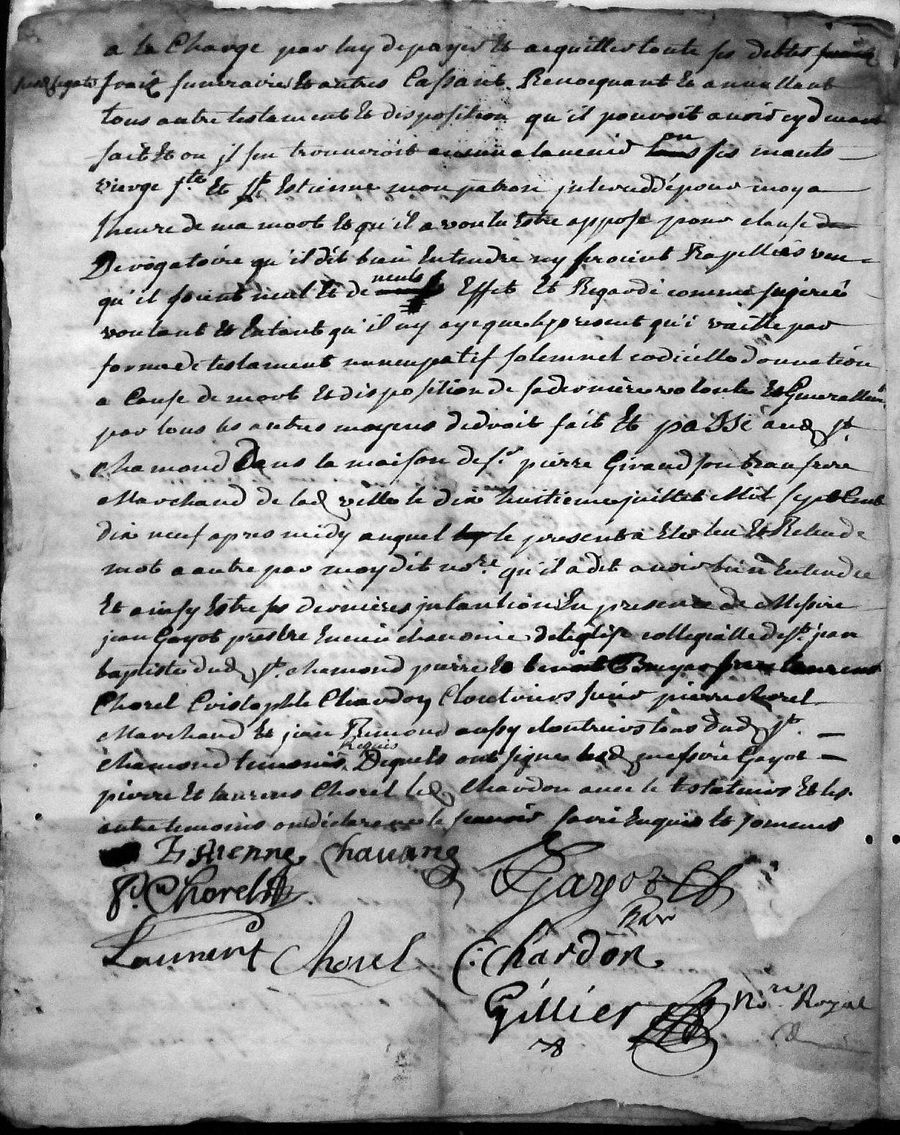 a la Charge par luy de payer Et acquitter toute ses debtes
frais funeraire Et autres Cassant Revocquant Et annullant
tous autre testament Et disposition qu'il pouvoit avoir cy devant
fait Et ou il s'en trouveroit a lavenir ou ses mants
vierge ste Et st Estienne mon patron
lheure de ma mort Et qu'il a voulu Estre apposé pour clause de
Derogatoire qu'il dit bien Entendre ny seroient Rapellées veu
qu'il soient nul Et de nul Effet Et Regardé comme
voulant Et Entant qu'il ny aye que le present qui vaille par
forme de testament nuncupatif solemnel codicille donnation
a Cause de mort Et disposition de sa derniere volonté Et Generallemt
par tous les autres moyens de droit fait Et passé aud st
chamond Dans la maison de sr pierre Giraud son beau frere
Marchand de lad ville le dix huitieme juillet Mil sept Cent
dix neuf apres midy auquel le present a Eté leu Et Releu de
mot a autre par moy dit nore qu'il a dit avoir bien Entendre
Et ainsy Estre ses dernieres intantion En presence de Messire
jean Gayot prestre Encien chanoine de leglise collegialle de st jean
baptiste dud st chamond pierre Et benoit laurent
Chorel Cristophle Chardon Cloutriers sieur pierre chorel
Marchand Et jean Rimond aussy cloutriers tous dud st
chamond temoins Requis Desquels ont signé led messire Gayot
pierre Et laurens Chorel led Chardon avec le testateurs Et les
autre temoins ont déclaré ne le scavoir faire Enquis Et sommés
Estienne Chavana
Gayot
P. Chorel
Laurent Chorel
C. Chardon
Gillier Nore Royal